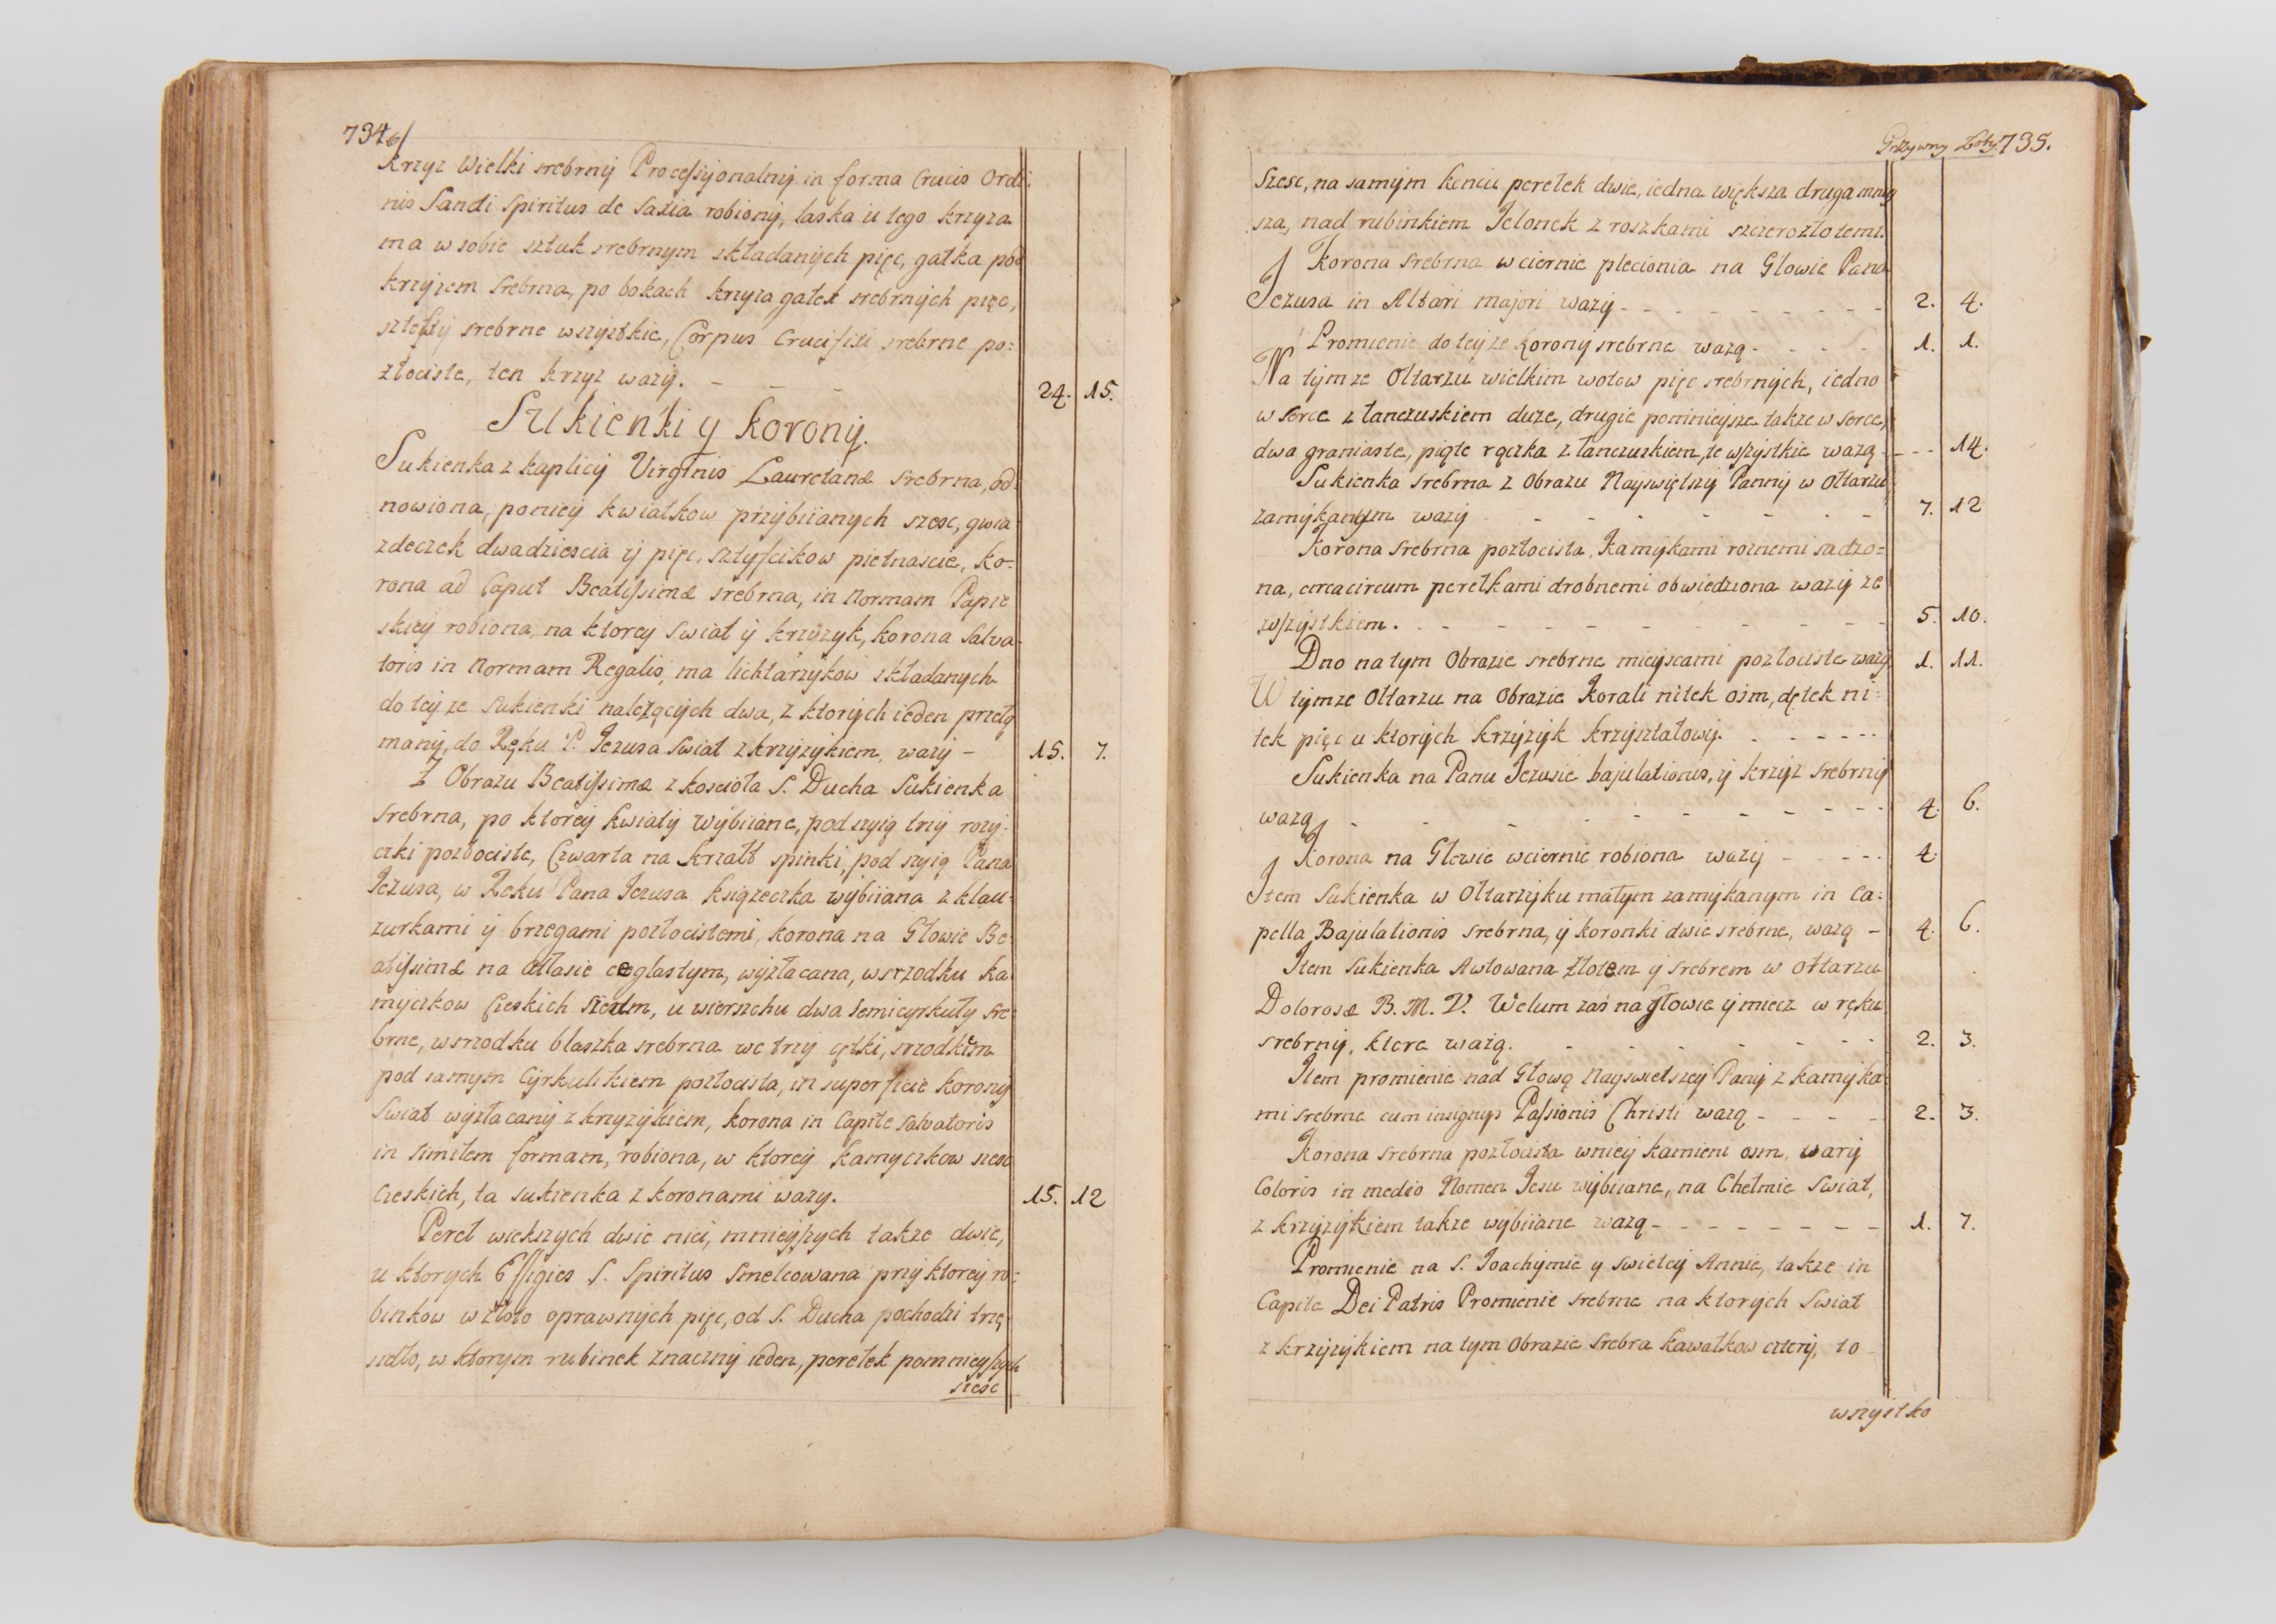 734
Krzyz Wielki srebrny Processyonalny in forma Crucis Ordi:
nis Sancti Spiritus de Saxia robiony, laska u tego krzyza
ma w sobie sztuk srebrnym składanych pięc, gałka pod
krzyzem srebrna, po bokach krzyza gałek srebrnych pięc,
sztefty srebrne wszystkie, Corpus Crucifixi srebrne po:
złociste, ten krzyz wazy. - - - 24. 15.
Sukienki y Korony.
Sukienka z kaplicy Virginis Lauretanæ srebrna, od:
nowiona, poniey kwiatkow przybiianych szesc, gwia
zdeczek dwadziescia y pięc, sztyfcikow pietnascie, ko:
rona ad Caput Beatissimæ srebrna, in Normam Papie
skiey robiona, na ktorey swiat y krzyzyk, korona Salva
toris in Normam Regalis, ma lichtarzykow składanych
do teyze Sukienki nalezących dwa, z ktorych ieden przeła
many, do Ręku P. Jezusa Swiat z krzyzykiem, wazy - 15. 7.
Z Obrazu Beatissimæ z koscioła S. Ducha Sukienka
Srebrna, po ktorey kwiaty wybiiane, pod szyią trzy rozy:
czki pozłociste, Czwarta na krzałt spinki, pod szyią Pana
Jezusa, w Reku Pana Jezusa ksiązeczka wybiiana z klau:
zurkami y brzegami pozłocistemi, korona na Głowie Be:
atissimæ na atłasie ceglastym, wyzłacana, wsrzodku ka
myczkow Czeskich siedm, u wierszchu dwa Semicyrkuły sre
brne, wsrzodku blaszka srebrna we trzy cętki, srzodkiem
pod samym Cyrkulikiem pozłocista, in superficie korony
Swiat wyzłacany z krzyzykiem, korona in Capite Salvatoris
in similem formam, robiona, w ktorey kamyczkow szesc
Czeskich, ta sukienka z koronami wazy. 15. 12
Pereł wiekszych dwie nici, mnieyszych takze dwie,
u ktorych Effigies S. Spiritus Smelcowana przy ktorey ru:
binkow w złoto oprawnych pięc, od S. Ducha pochodzi trzę
sidło, w ktorym rubinek znaczny ieden, perełek pomnieyszych
szesc
Grzywny Łoty. 735.
Szesc, na samym koncu perełek dwie, iedna większa druga mniey
sza, nad rubinkiem Jelonek z roszkami szczerozłotemi.
Korona Srebrna w ciernie plecionia na Głowie Pana
Jezusa in Altari majori wazy - - - - - - - - - 2. 4.
Promienie do teyze Korony srebrne wazą - - - - 1. 1.
Na tymze Ołtarzu wielkim wotow pięc srebrnych, iedno
w Serce z łanczuskiem duze, drugie pomnieysze takze w Serce,
dwa graniaste, piąte rączka z łanczuszkiem, te wszystkie wazą - - - 14.
Sukienka Srebrna z Obrazu Nayswiętszy Panny w Ołtarzu
zamykanym wazy - - - - - - - 7. 12
Korona Srebrna pozłocista, Kamykami roznemi sadzo:
na, circacircum perełkami drobnemi obwiedziona wazy ze
wszystkiem. - - - - - - - - - - - 5. 10.
Dno na tym Obrazie srebrne mieyscami pozłociste wazy 1. 11.
W tymze Ołtarzu na Obrazie Korali nitek osm, dętek ni:
tek pięc u ktorych krzyzyk krzyształowy. - - - - - -
Sukienka na Panu Jezusie bajulationis, y krzyz Srebrny
wazą - - - - - - - - - 4. 6.
Korona na Głowie w ciernie robiona wazy - - - - - 4.
Item Sukienka w Ołtarzyku małym zamykanym in Ca:
pella Bajulationis srebrna, y koronki dwie srebrne, wazą - 4. 6.
Item Sukienka Awtowana złotem y srebrem w ołtarzu
Dolorosæ B. M. V. Welum zas na głowie y miecz w ręku
srebrny, ktore wazą. - - - - - - - - 2. 3.
Item promienie nad Głową Nayswietszey Pany z kamyka:
mi srebrne cum insignys Passionis Christi wazą - - - - 2. 3.
Korona srebrna pozłocista w niey kamieni osm, varij
Coloris in medio Nomen Jesu wybiiane, na Chełmie Swiat,
z krzyzykiem takze wybiiane wazą - - - - - - - - 1. 7.
Promienie na S. Joachymie y swietey Annie, takze in
Capite Dei Patris Promienie srebrne na ktorych Swiat
z krzyzykiem na tym Obrazie srebra kawałkow cztery, to
wszystko